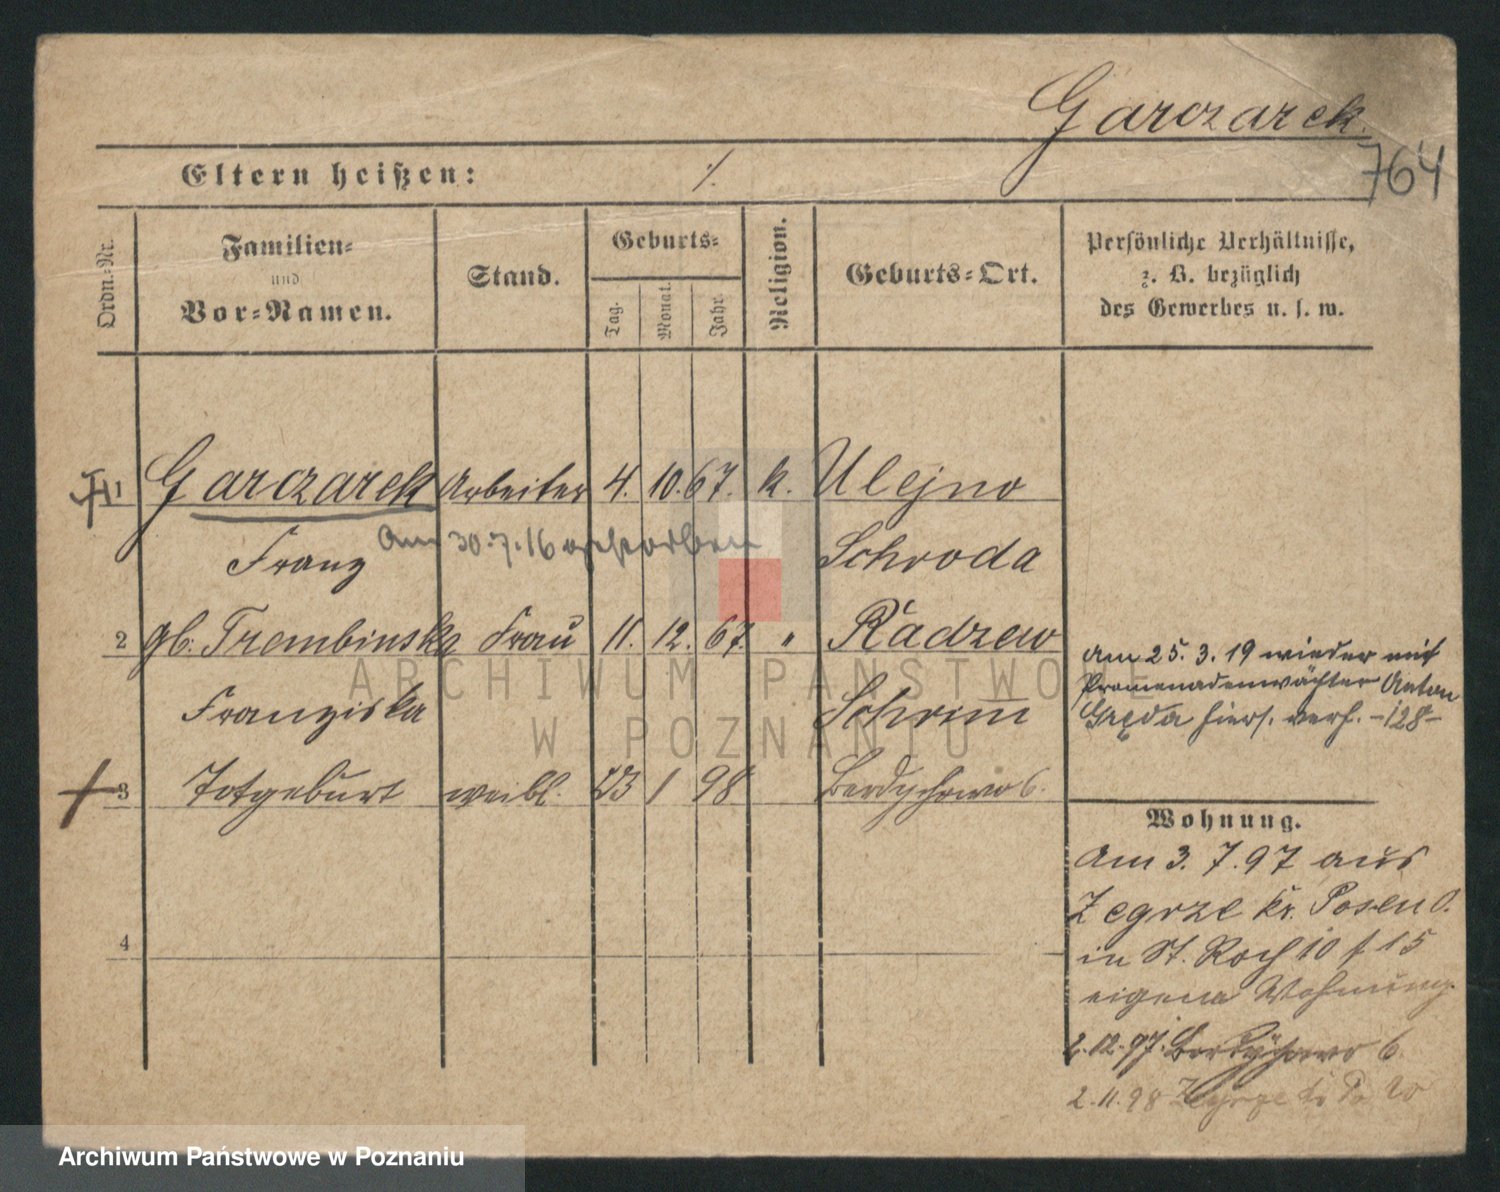 Garczarek.
764
Eltern heißen: ./.
Ordn.=Nr.
Familien=
und
Vor=Namen.
Stand.
Geburts=
Tag.
Monat.
Jahr.
Religion.
Geburts=Ort.
Persönliche Verhältnisse,
z. B. bezüglich
des Gewerbes u. s. w.
1 Garczarek Arbeiter 4. 10. 67. k. Ulejno
Franz Schroda
am 30.7.16 gestorben
2 gb. Trembinska Frau 11. 12. 67. " Radzewo
Franziska Schrimm
am 25. 3. 19 wieder mit
Promenadenwächter Anton
Gręda hiers. verh. -128-
3 Totgeburt weibl. 23 1 98 Berdychowo 6.
4
Wohnung.
Am 3. 7. 97 aus
Zegrze Kr. Posen O.
in St. Roch 10 f 15
eigene Wohnung.
2.12.97. Berdychowo 6.
2.11.98 Zegrze
ARCHIWUM PAŃSTWOWE
W POZNANIU
Archiwum Państwowe w Poznaniu